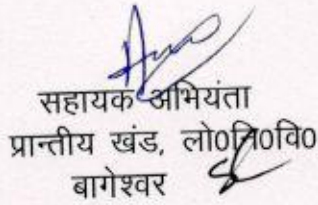 सहायक अभियंता
प्रान्तीय खंड, लो०नि०वि०
बागेश्वर